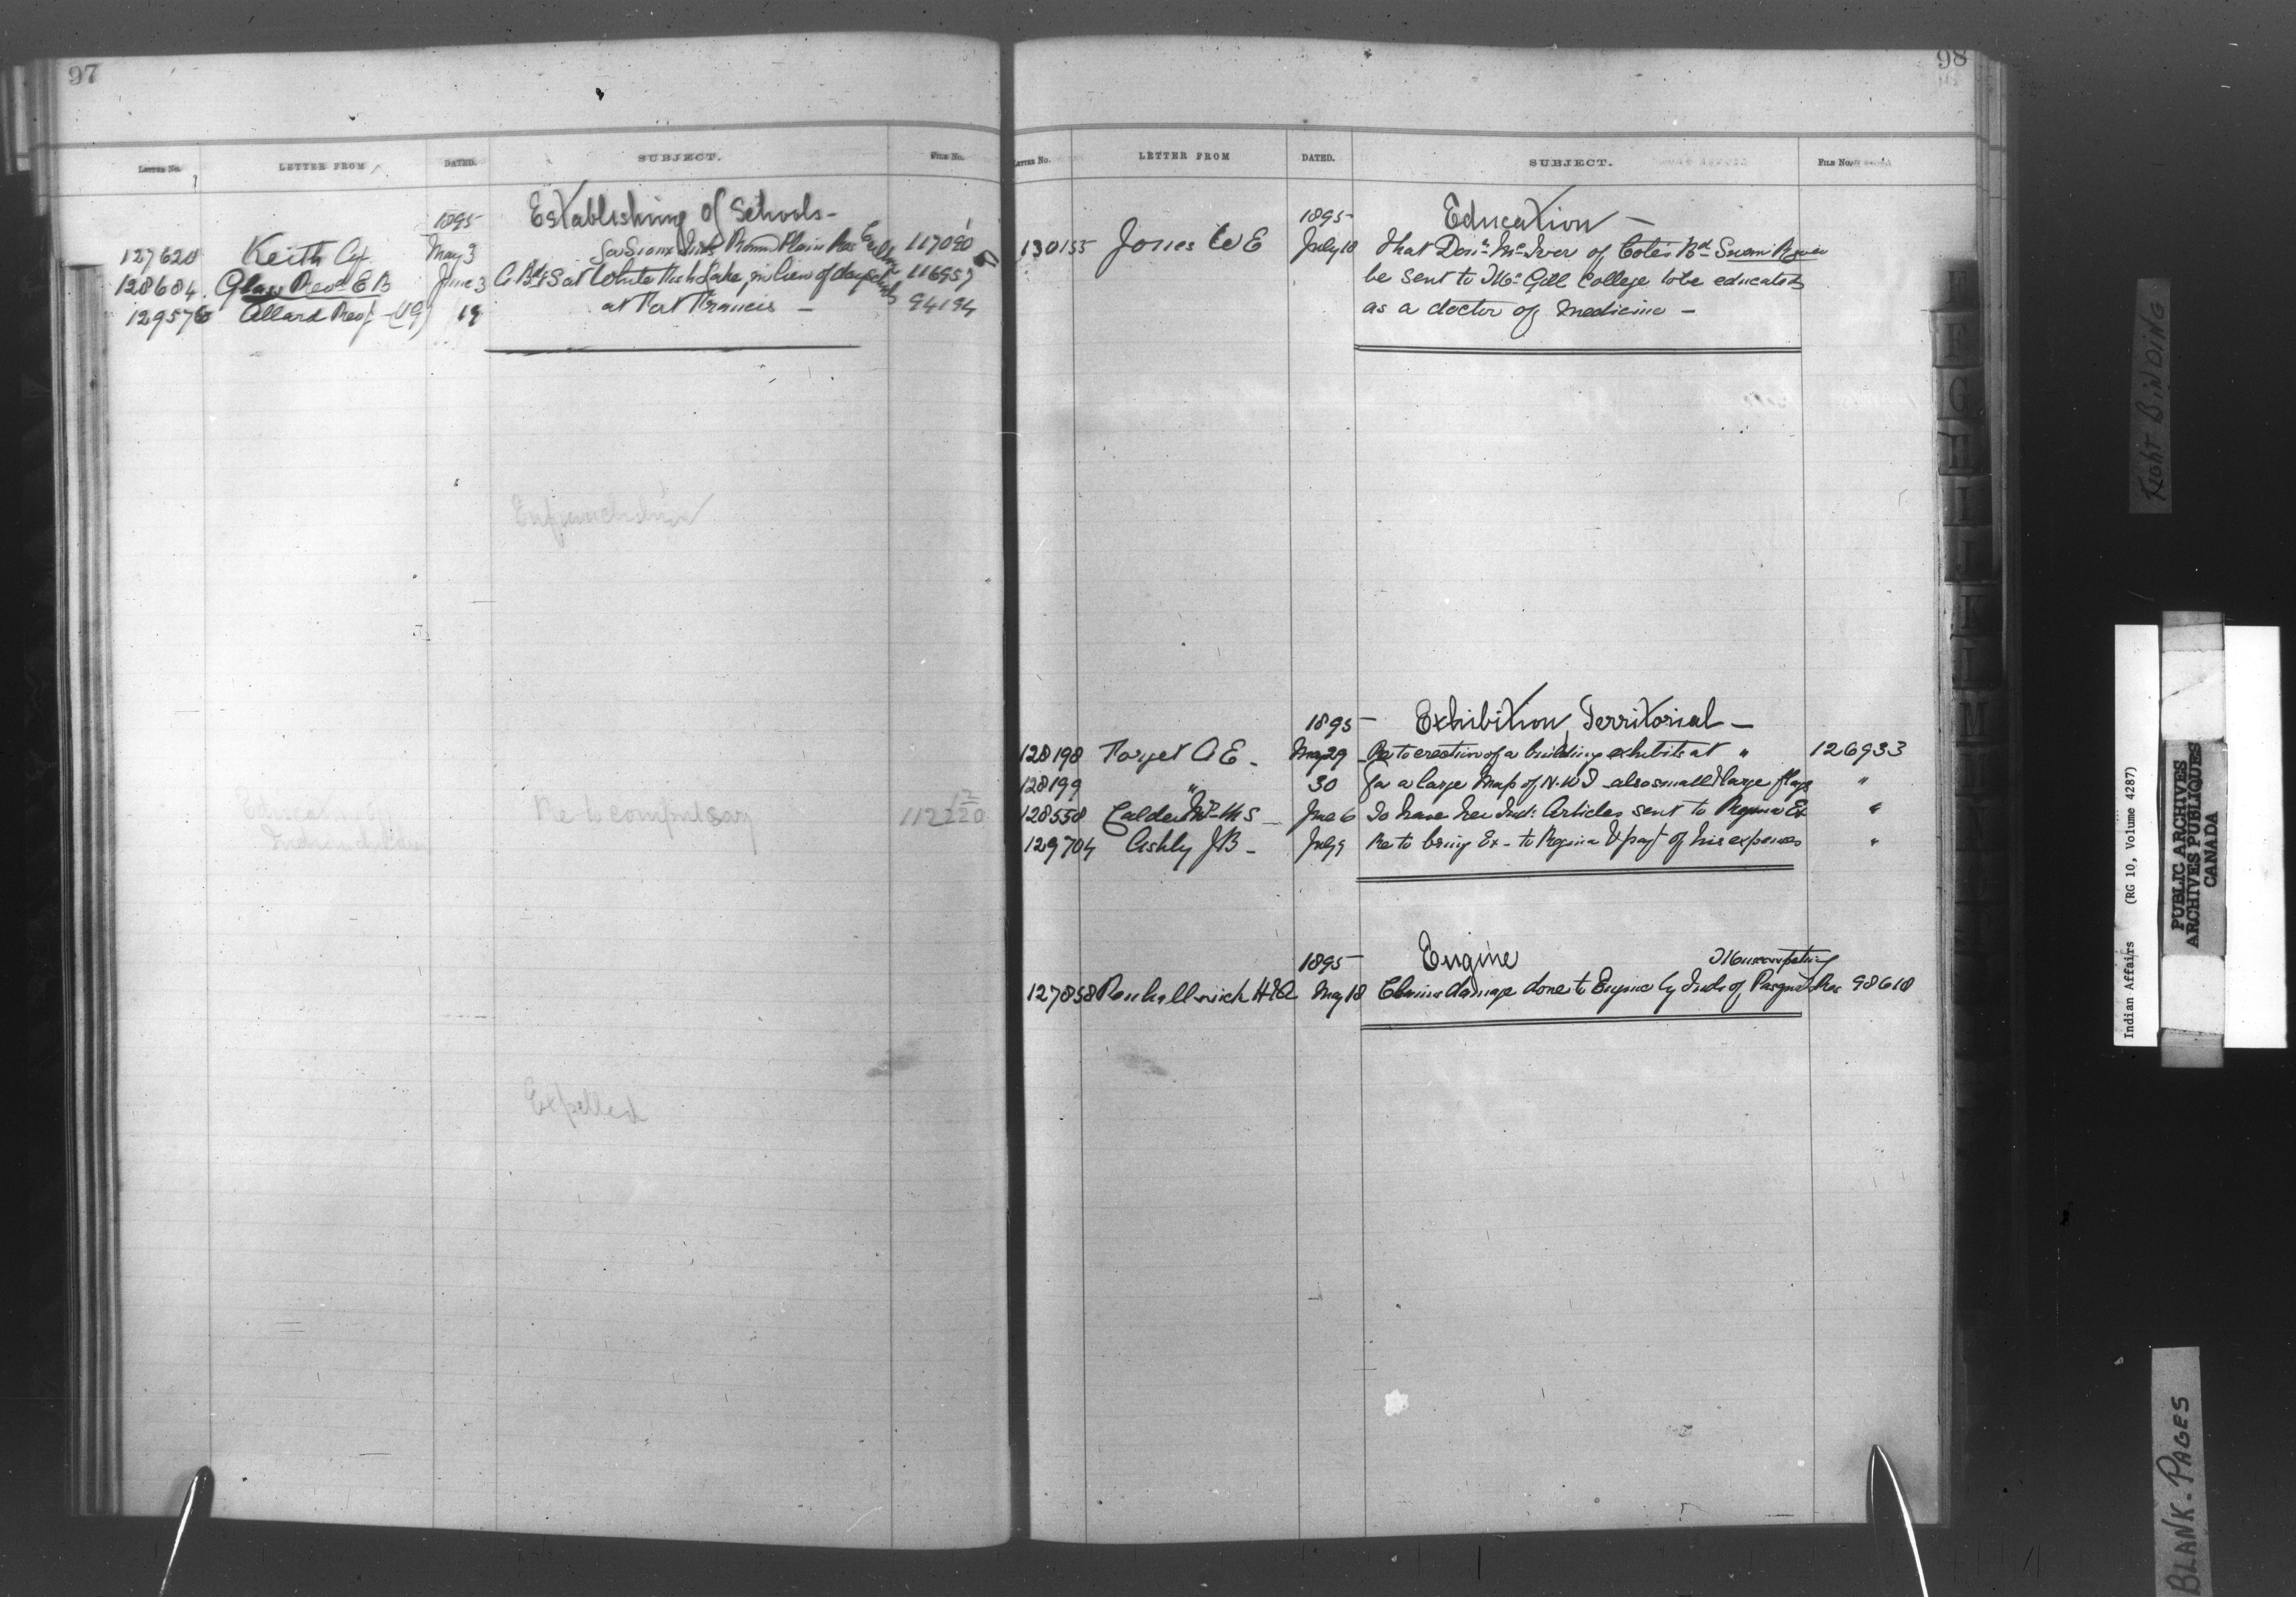 97
LETTER No. LETTER FROM DATED. SUBJECT. FILE No.
1895 Establishing of Schools-
127620 Keith Cy. May 3 Round Plain Res 117080
128684. Glass Revd E B June 3 at White Fish Lake, in lieu of day 116957
129576 Allard Rev J- 19 at Fort Francis - 94194
Enfranchisement
Education of Re to compulsory 112220
Indian children
Expelled
98
LETTER No. LETTER FROM DATED. SUBJECT. FILE No.
1895 Education -
130155 Jones W E July 18 That Don. Mc Iver of Cote's Bd - Swan River
be sent to Mc Gill College to be educated
as a doctor of medicine -
1895 - Exhibition, Territorial -
128198 Forget A E - May 29 Re to erection of a building exhibits at " 126933
128199 " 30 For a large Map of N.W.T also small & large flags "
128558 Calder M S - June 6 To have her Ind: Articles sent to Regina Ex "
129704 Ashly J B - July 9 Re to bring Ex- to Regina & pay of his expenses "
1895 - Engine
127858 H R May 18 Claims damage done to Engine by Inds of Pasqua Res 98618
Right Binding
Indian Affairs (RG 10, Volume 4287)
PUBLIC ARCHIVES
ARCHIVES PUBLIQUES
CANADA
BLANK-PAGES